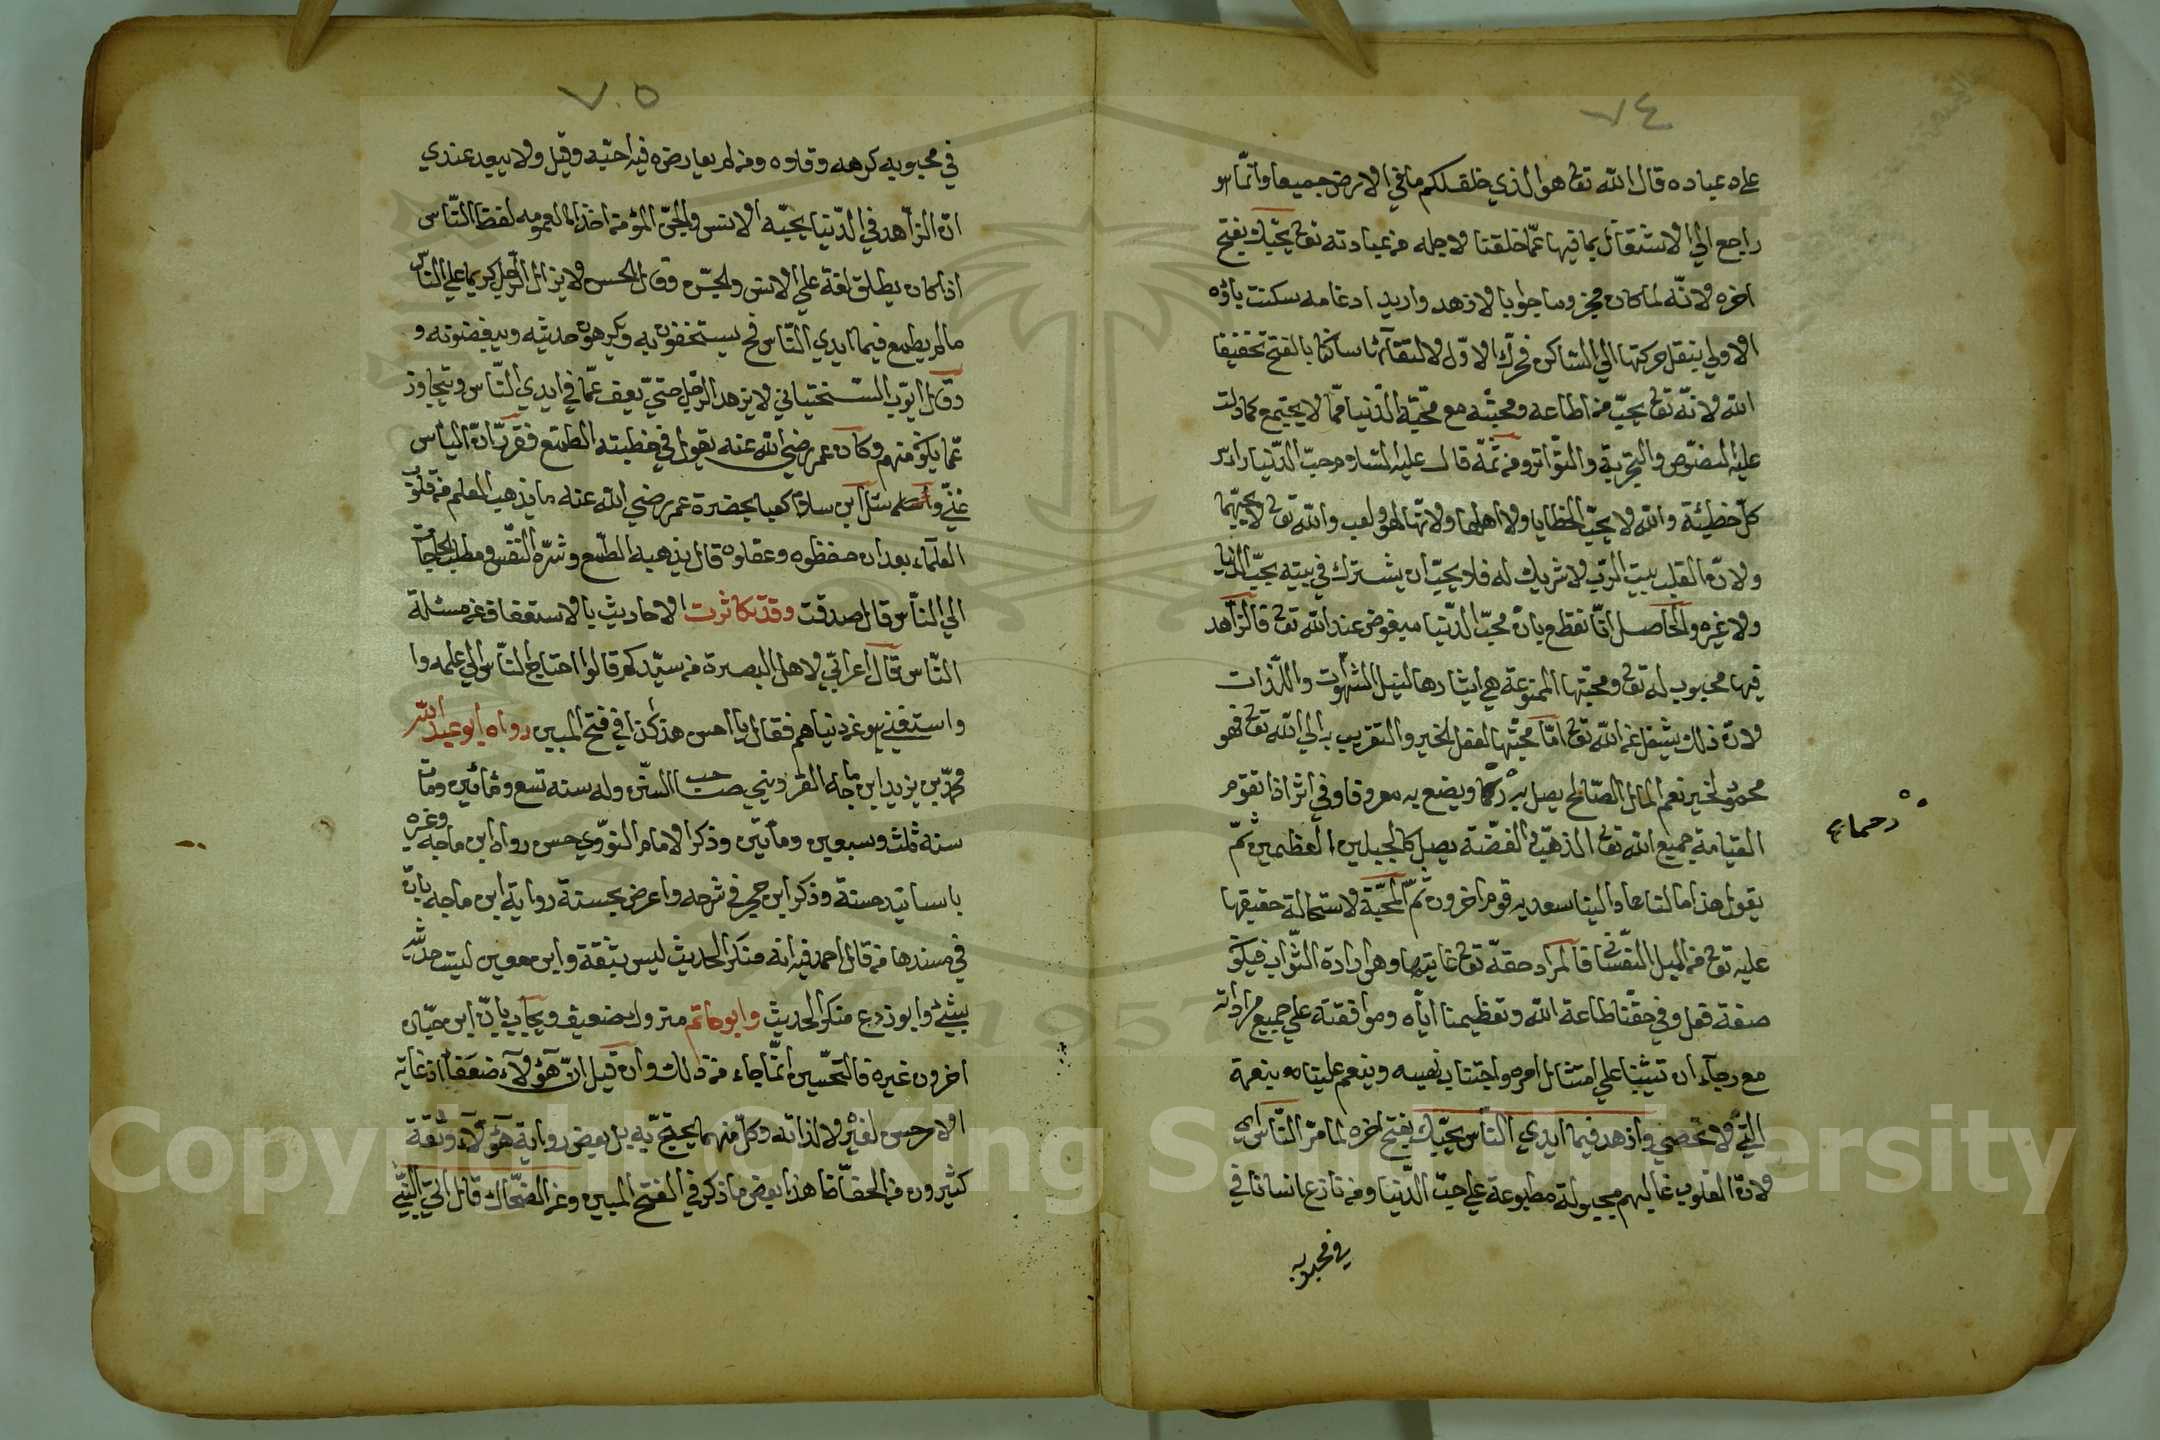 ٧٤
علي عباده قال الله تعالى هو الذي خلق لكم ما في الارض جميعا وانما هو
راجع الي الاشتغال بما فيها عما خلقنا لاجله من عبادته تعالى يحبك بفتح
اخره لانه لما كان مجزوما جوابا لازهد واريد ادغامه سكنت باؤه
الاولي بنقل حركتها الي الساكن فحرك الاول لالتقاء الساكنين بالفتح تخفيفا
الله لانه تعالى يحب من اطاعه ومحبته مع محبة الدنيا مما لا يجتمع كما دلت
عليه النصوص والتجربة والتواتر ومن ثمة قال عليه السلام حب الدنيا راس
كل خطيئة والله لا يحب الخطايا ولا اهلها ولانها لهو ولعب والله تعالى لا يحبهما
ولان القلب بيت الرب لا شريك له فلا يحب ان يشترك في بيته بحب الدنيا
ولا غيره والحاصل انا نقطع بان محب الدنيا مبغوض عند الله تعالى فالزاهد
فيها محبوب له تعالى ومحبتها الممنوعة هي ايثارها لنيل الشهوات واللذات
لان ذلك يشغل عن الله تعالى اما محبتها لفعل الخير والتقرب بها الي الله تعالى فهو
محمود لخبر نعم المال الصالح يصل به رحما ويضع به معروفا وفي اثر اذا تقوم
القيامة جميع الله تعالى الذهب والفضة يصل كالجبلين العظيمين ثم
يقول هذا مالنا عاد الينا سعد به قوم اخرون ثم المحبة لاستحالة حقيقتها
عليه تعالى من الميل النفساني فالمراد حقه تعالى غايتها وهي ارادة الثواب فيكون
صفة فعل وفي حقنا طاعة الله وتعظيمنا اياه وموافقته علي جميع مراداته
مع رجاء ان تثيبنا علي امتثال امره واجتناب نهيه وينعم علينا بنعمه
التي لا تحصي وازهد فيما ايدي الناس يحبك بفتح اخره لما مر الناس
لان القلوب غالبهم مجبولة مطبوعة علي حب الدنيا ومن نازع انسانا في
في محبوبه
رحما ع
٧٥
في محبوبه كرهه وقلاه ومن لم يعارضه فيه احبه وقيل ولا يبعد عندي
ان الزاهد في الدنيا يحبه الانس والجن المؤمن اخذا بالعموم لفظ الناس
اذا كان يطلق لغة علي الانس والجن وقال الحسن لا يزال الرجل كريما علي الناس
ما لم يطمع فيما ايدي الناس فح يستخفون به ويكرهون حديثه ويبغضونه و
وقال ايوب السختياني لا يزهد الرجل حتي يعف عما في ايدي الناس وتجاوز
عما يكون منهم وكان عمر رضي الله عنه يقول في خطبته الطمع فقر وان الياس
غني وسئل ابن سلام كعبا بحضرة عمر رضي الله عنه ما يذهب العلم من قلوب
العلماء بعد ان حفظوه وعقلوه قال يذهبه الطمع وشره النفس ومطلب الحاجات
الي الناس قال صدقت وقد تكاثرت الاحاديث بالاستعفاف عن مسئلة
الناس قال اعرابي لاهل البصرة من سيدكم قالوا احتياج الناس الي علمه وا
واستغني هو عن دنياهم فقال ما احسن هذ كذا في فتح المبين رواه ابو عبد الله
محمد بن يزيد ابن ماجه القزويني صاحب السنن وله سنة تسع ومائتين ومات
سنة ثلث وسبعين ومائتين وذكر الامام النووي حسن رواه ابن ماجه وغيره
باسانيد حسنة وذكر ابن حجر في شرحه واعرض بحسنة رواية ابن ماجه بان
في مسندها من قال احمد فيه انه منكر الحديث ليس بثقة وابن معين ليس حديثه
بشيء وابو زرع منكر الحديث وابو حاتم متروك ضعيف ويجاب بان ابن حبان
اخرون غيره فالتحسين انما جاء من ذلك وان قيل ان هؤلاء ضعفا اذ غاية
الامر حسن لغيره لا لذاته وكل منهما يحتج به بل بعض رواية هؤلاء وثقة
كثيرون من الحفاظ هذا بعض ما ذكر في الفتح المبين وعن الضحاك قال اتي النبي
Copyright © King Saud University
1957